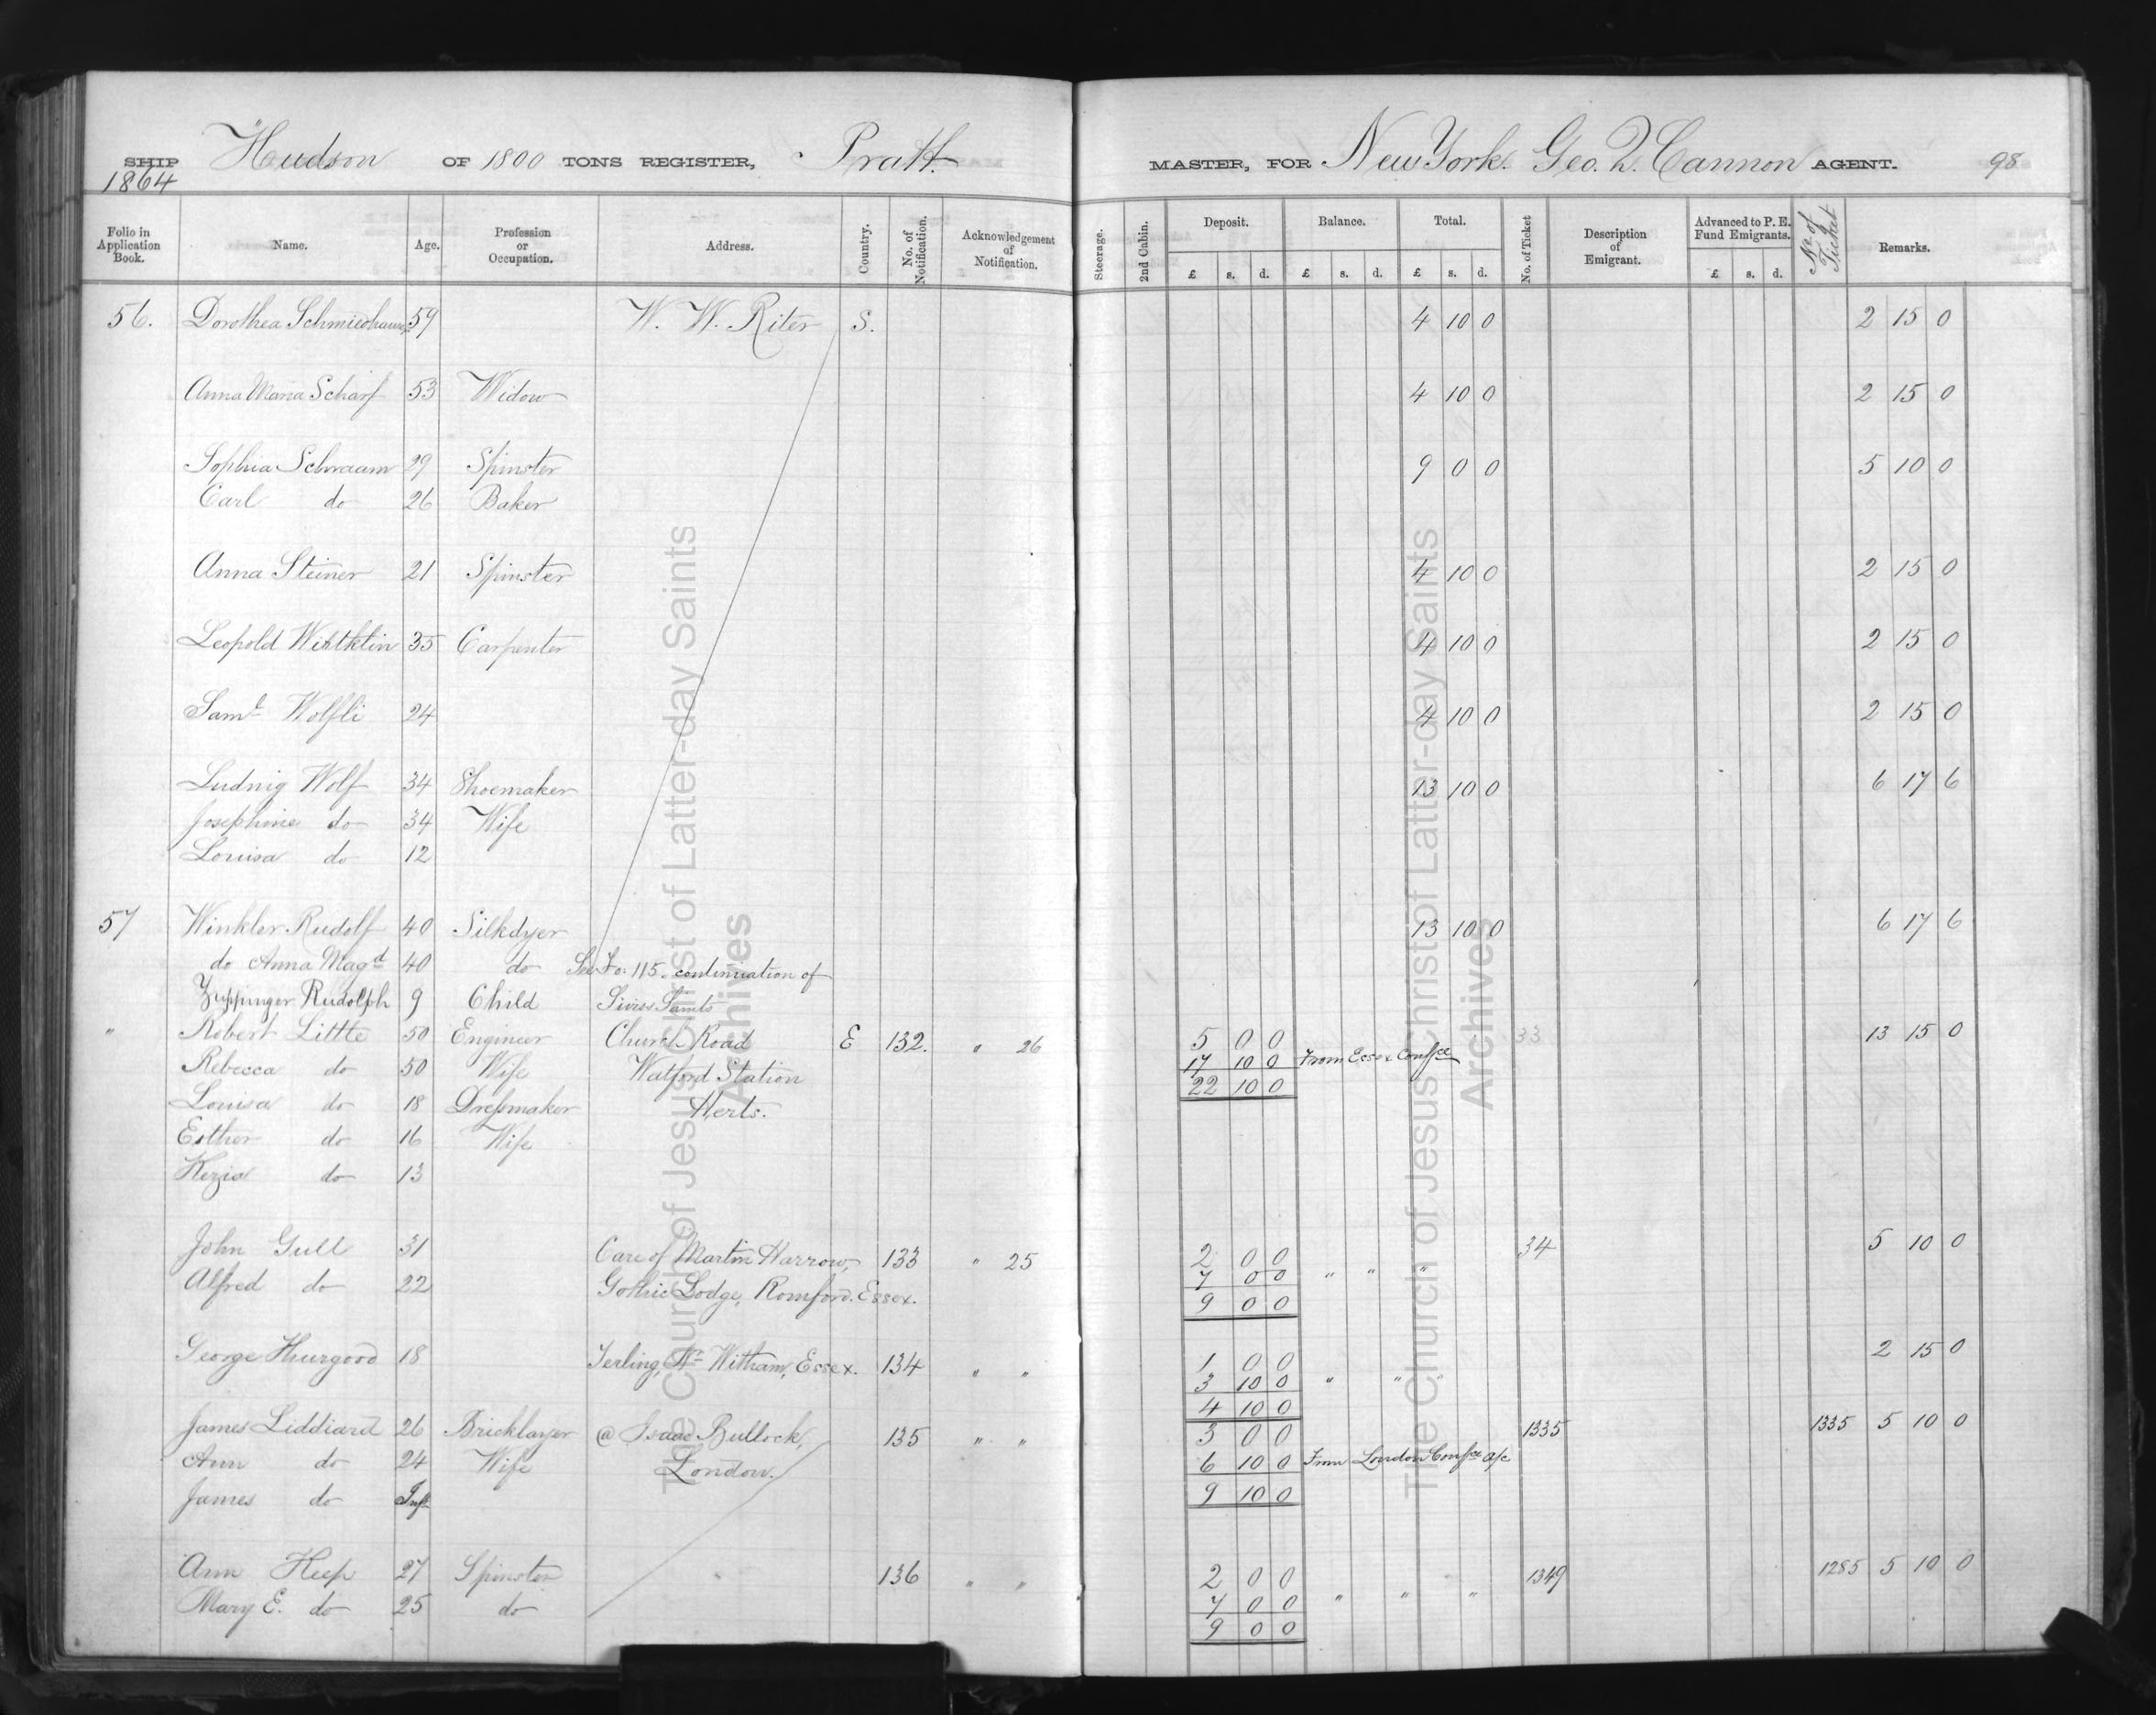 SHIP Hudson OF 1800 TONS REGISTER, Pratt. MASTER, FOR New York. Geo. Q. Cannon AGENT. 98
1864
Folio in Application Book. Name. Age. Profession or Occupation. Address. Country. No. of Notification. Acknowledgement of Notification. Steerage. 2nd Cabin. Deposit. Balance. Total. No. of Ticket Description of Emigrant. Advanced to P. E. Fund Emigrants. No. of Ticket Remarks.
£ s. d. £ s. d. £ s. d. £ s. d.
56. Dorothea 59 W. W. Riter S. 4 10 0 2 15 0
Anna Maria Scharf 53 Widow 4 10 0 2 15 0
Sophia Schraam 29 Spinster 9 0 0 5 10 0
Carl do 26 Baker
Anna Steiner 21 Spinster 4 10 0 2 15 0
Leopold 35 Carpenter 4 10 0 2 15 0
Saml Wolfli 24 4 10 0 2 15 0
Ludnig Wolf 34 Shoemaker 13 10 0 6 17 6
Josephine do 34 Wife
Louisa do 12
57 Winkler Rudolf 40 Silkdyer 13 10 0 6 17 6
do Anna Magd 40 do See Fo: 115. continuation of
Zuppinger Rudolph 9 Child Swiss Saints
" Robert Little 50 Engineer Church Road E 132. " 26 5 0 0 33 13 15 0
Rebecca do 50 Wife Watford Station 17 10 0 From Essex Confce
Louisa do 18 Dressmaker Herts. 22 10 0
Esther do 16 Wife
Kezia do 13
John Gull 31 Care of Martin Harrow, 133 " 25 2 0 0 34 5 10 0
Alfred do 22 Gothic Lodge, Romford. Essex. 7 0 0 " " "
9 0 0
George Thurgood 18 Terling, Nr Witham, Essex. 134 " " 1 0 0 2 15 0
3 10 0 " " "
4 10 0
James Liddiard 26 Bricklayer @ Isaac Bullock, 135 " " 3 0 0 1335 1335 5 10 0
Ann do 24 Wife London. 6 10 0 From London Confce a/c
James do Inft 9 10 0
Ann Heep 27 Spinster 136 " " 2 0 0 1349 1285 5 10 0
Mary E. do 25 do 7 0 0 " " "
9 0 0
The Church of Jesus Christ of Latter-day Saints
Archives
The Church of Jesus Christ of Latter-day Saints
Archives